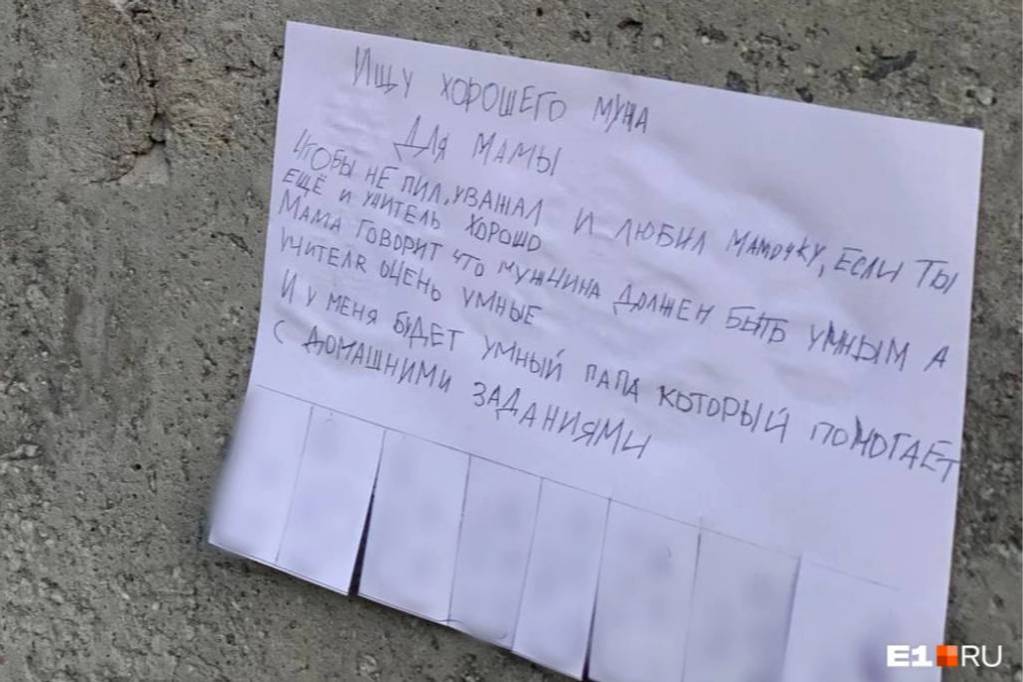 Ищу хорошего мужа
Для мамы
чтобы не пил, уважал и любил мамочку, Если ты
ещё и учитель хорошо
Мама говорит что мужчина должен быть умным а
учителя очень умные
И у меня будет умный папа который помогает
с домашними заданиями
E1.RU